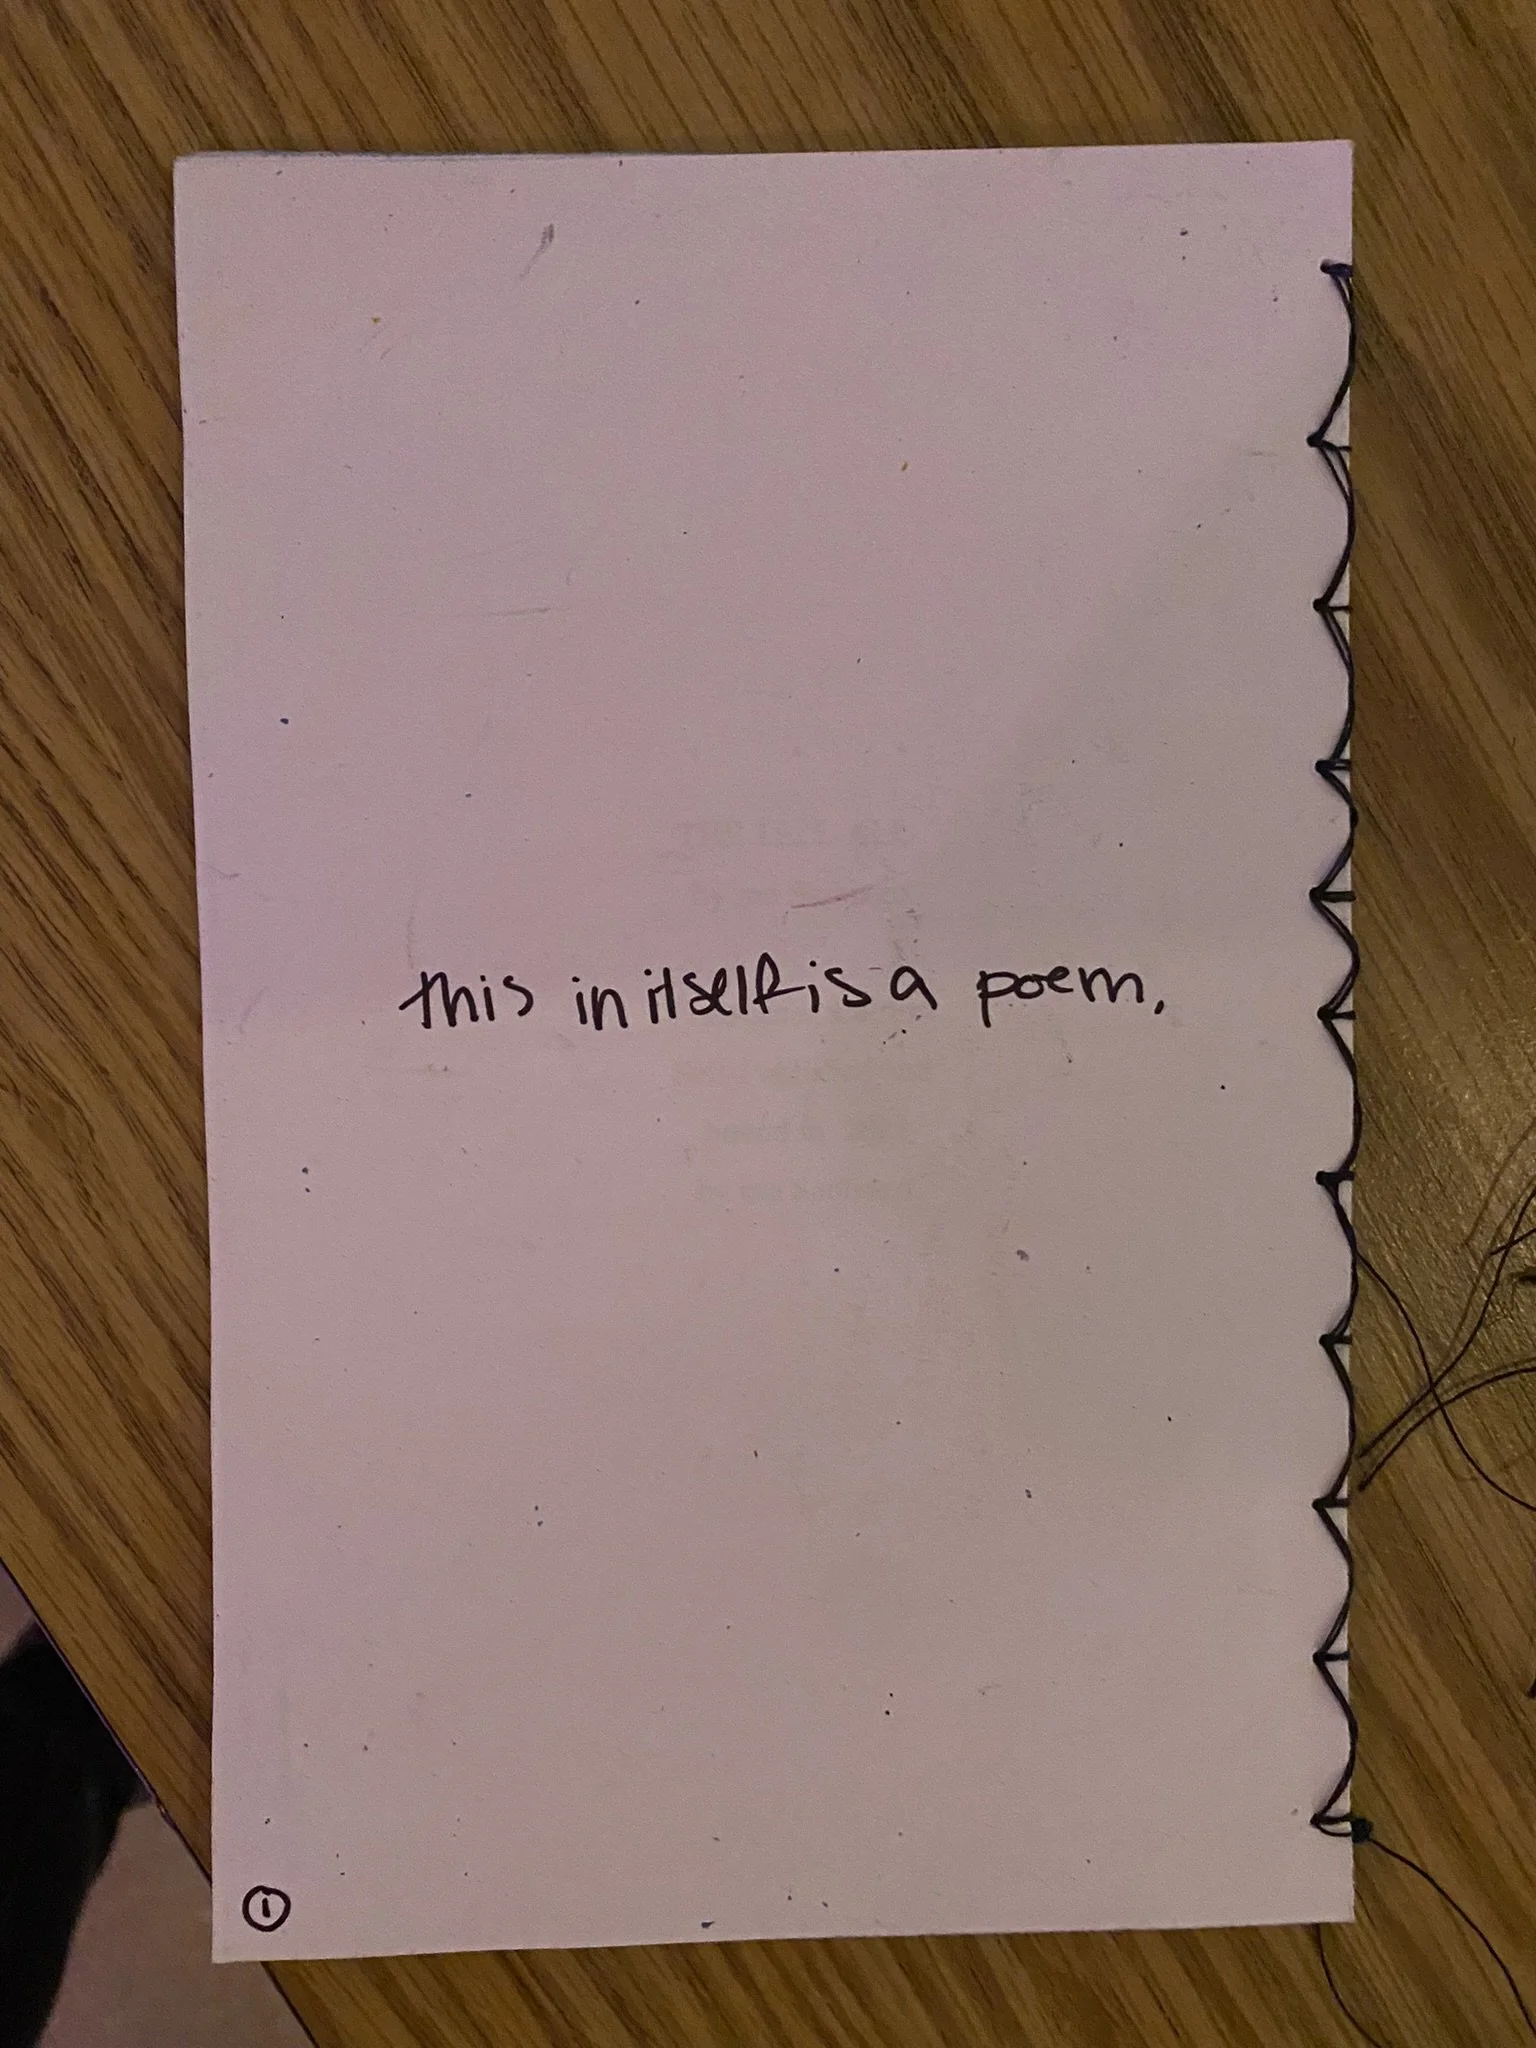 this in itself is a poem.
1